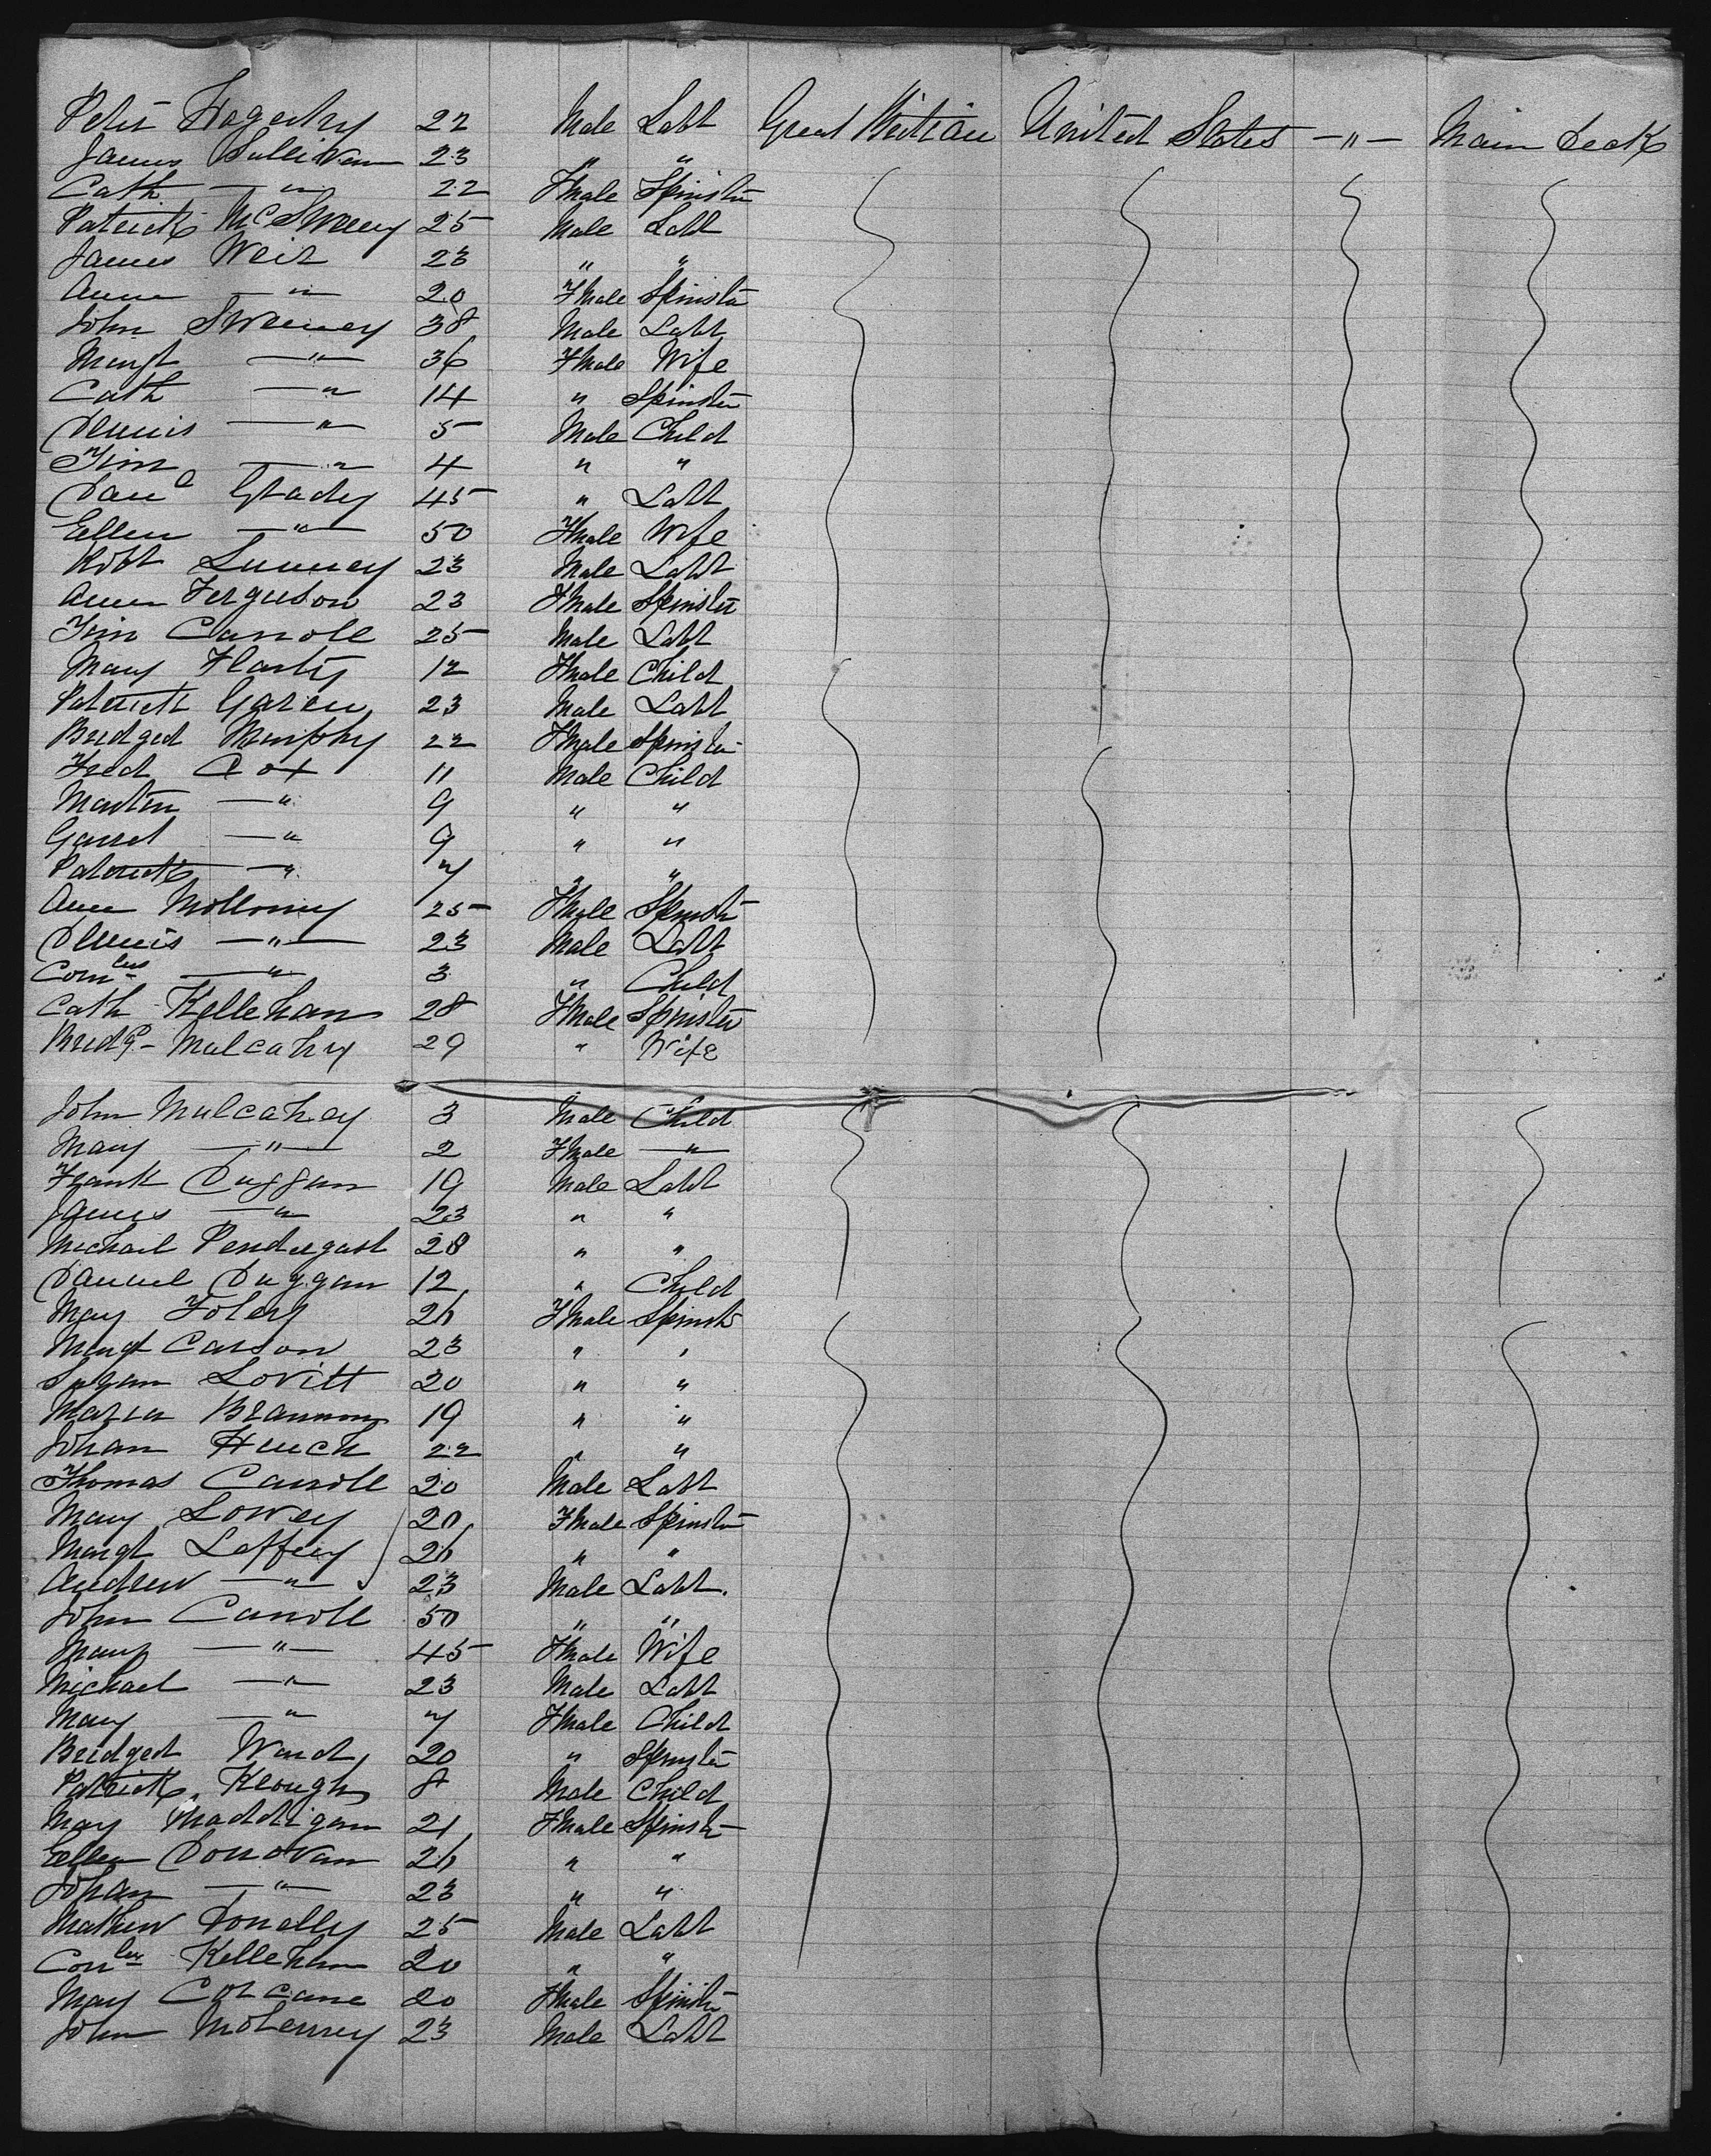 Peter Hagerty 22 Male Labr Great Britian United States —"— Main Deck
James Sullivan 23 " "
Cath —"— 22 Fmale Spinster
Patrick McSweeney 25 Male Labr
James Weir 23 " "
Anne —"— 20 Fmale Spinster
John Sweeney 38 Male Labr
Margt —"— 36 Fmale Wife
Cath —"— 14 " Spinster
Dennis —"— 5 Male Child
Tim —"— 4 " "
Danl Grady 45 " Labr
Ellen —"— 50 Fmale Wife
Robt Lunney 23 Male Labr
Ann Ferguson 23 Fmale Spinster
Tim Carroll 25 Male Labr
Mary Flarty 12 Fmale Child
Patrick 23 Male Labr
Bridged Murphy 22 Fmale Spinster
Fred Cox 11 Male Child
Martin —" 9 " "
Garret —" 9 " "
Patrick —" 7 " "
Ann Mollony 25 Fmale Spinster
Dennis —"— 23 Male Labr
Cornlus —"— 3 " Child
Cath Kellehan 28 Fmale Spinster
Bridg- Mulcahy 29 " Wife
John Mulcahey 3 Male Child
Mary —"— 2 Fmale —"—
Frank Duggan 19 Male Labr
James —"— 23 " "
Michael Pendergast 28 " "
Danuel Duggan 12 " Child
Mary Foley 26 Fmale Spinstr
Margt Carson 23 " "
Susan Lovitt 20 " "
Maria Brannon 19 " "
Johan 22 " "
Thomas Carroll 20 Male Labr
Mary Lowey 20 Fmale Spinster
Margt Laffey 26 " "
Andrew —"— 23 Male Labr.
John Carroll 50 " "
Mary —"— 45 Fmale Wife
Michael —"— 23 Male Labr
Mary —"— 7 Fmale Child
Bridged Ward 20 " Spinster
Patrick Keough 8 Male Child
May Maddigan 21 Fmale Spinstr
Ellen Donovan 26 " "
Johan —"— 23 " "
Mathew Donelly 25 Male Labr
Cornlus Kellehan 20 " "
May Corcane 20 Fmale Spinstr
John 23 Male Labr